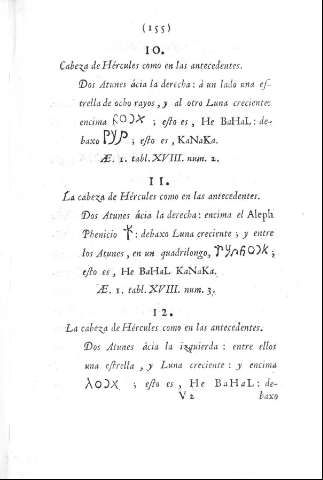 (155)
10.
Cabeza de Hércules como en las antecedentes.
Dos Atunes ácia la derecha: á un lado una es-
trella de ocho rayos, y al otro Luna creciente:
encima ; esto es, He BaHaL: de-
baxo ; esto es, KaNaKa.
Æ. 1. tabl. XVIII. num. 2.
11.
La cabeza de Hércules como en las antecedentes.
Dos Atunes ácia la derecha: encima el Aleph
Phenicio : debaxo Luna creciente; y entre
los Atunes, en un quadrilongo, ;
esto es, He BaHaL KaNaKa.
Æ. 1. tabl. XVIII. num. 3.
12.
La cabeza de Hércules como en las antecedentes.
Dos Atunes ácia la izquierda: entre ellos
una estrella, y Luna creciente: y encima
; esto es, He BaHaL: de-
V 2 baxo